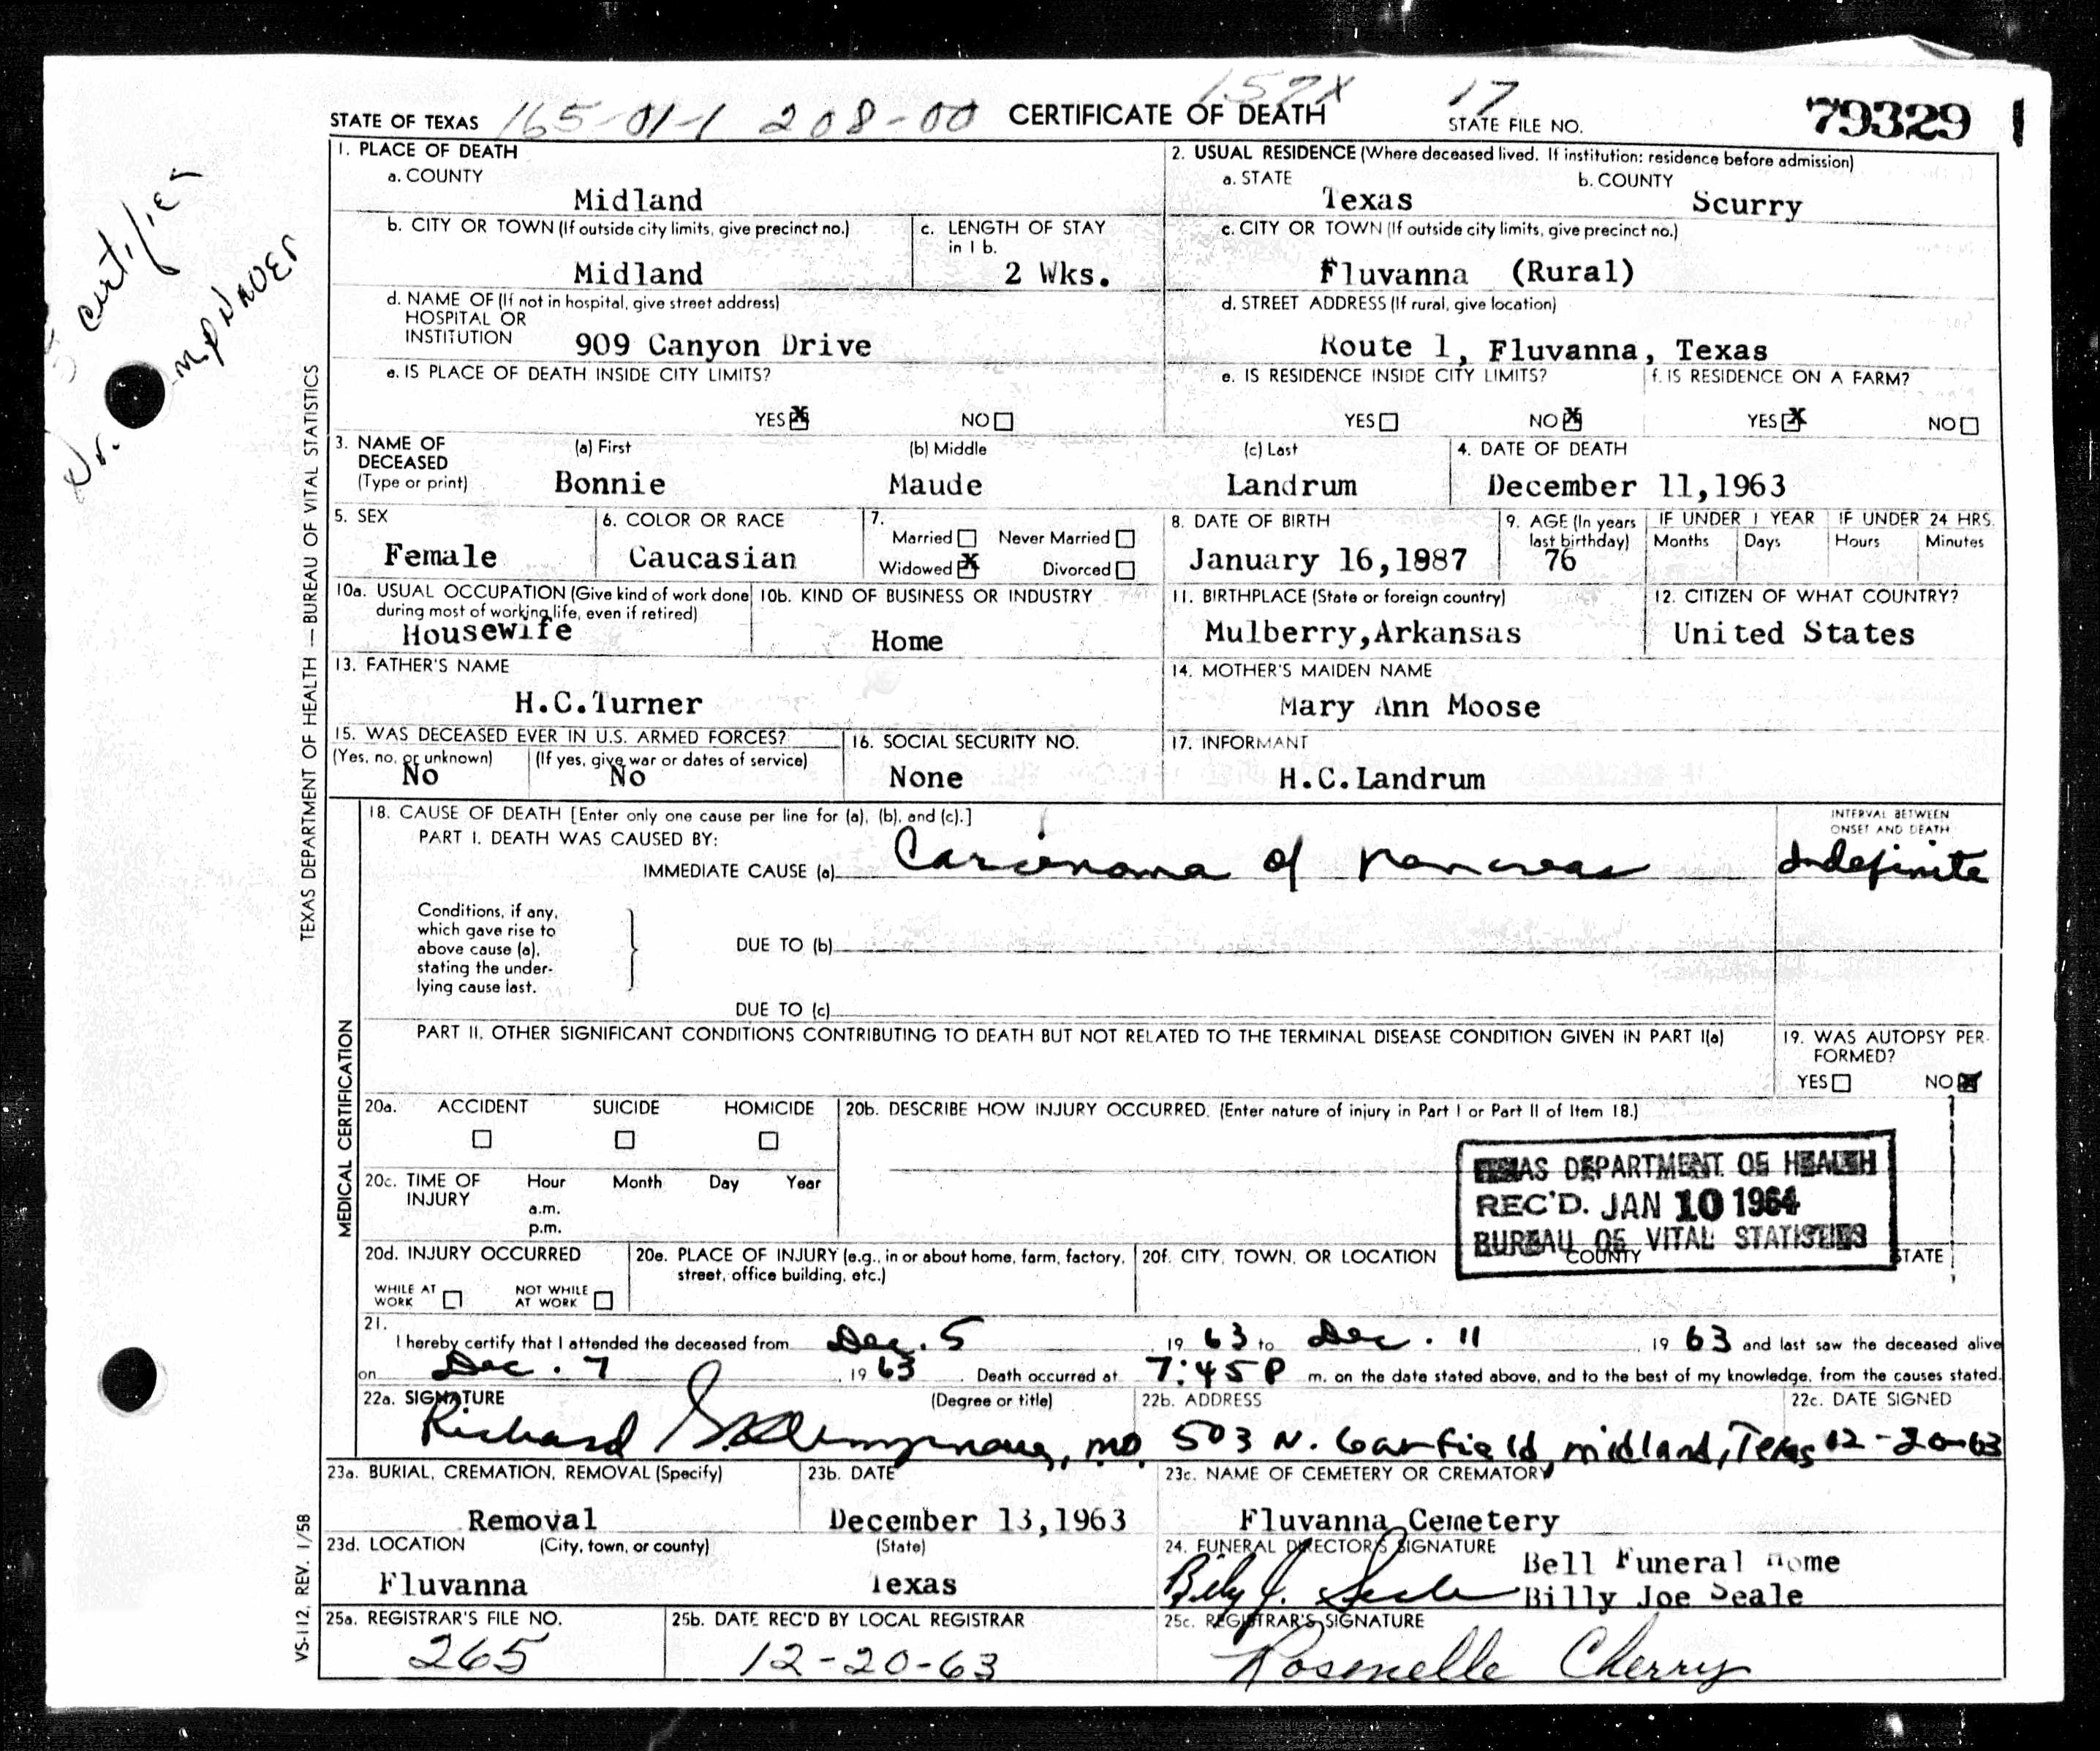 157X 17
STATE OF TEXAS 165-01-1 208-00 CERTIFICATE OF DEATH STATE FILE NO. 79329
1. PLACE OF DEATH
a. COUNTY
Midland
2. USUAL RESIDENCE (Where deceased lived. If institution: residence before admission)
a. STATE Texas b. COUNTY Scurry
b. CITY OR TOWN (If outside city limits, give precinct no.)
Midland
c. LENGTH OF STAY in 1 b.
2 Wks.
c. CITY OR TOWN (If outside city limits, give precinct no.)
Fluvanna (Rural)
d. NAME OF (If not in hospital, give street address)
HOSPITAL OR
INSTITUTION 909 Canyon Drive
d. STREET ADDRESS (If rural, give location)
Route 1, Fluvanna, Texas
e. IS PLACE OF DEATH INSIDE CITY LIMITS?
YES X NO
e. IS RESIDENCE INSIDE CITY LIMITS?
YES NO X
f. IS RESIDENCE ON A FARM?
YES X NO
3. NAME OF DECEASED (Type or print)
(a) First (b) Middle (c) Last
Bonnie Maude Landrum
4. DATE OF DEATH
December 11,1963
5. SEX
Female
6. COLOR OR RACE
Caucasian
7.
Married Never Married
Widowed X Divorced
8. DATE OF BIRTH
January 16,1987
9. AGE (In years last birthday)
76
IF UNDER 1 YEAR
Months Days
IF UNDER 24 HRS.
Hours Minutes
10a. USUAL OCCUPATION (Give kind of work done
during most of working life, even if retired)
Housewife
10b. KIND OF BUSINESS OR INDUSTRY
Home
11. BIRTHPLACE (State or foreign country)
Mulberry,Arkansas
12. CITIZEN OF WHAT COUNTRY?
United States
13. FATHER'S NAME
H.C.Turner
14. MOTHER'S MAIDEN NAME
Mary Ann Moose
15. WAS DECEASED EVER IN U.S. ARMED FORCES?
(Yes, no, or unknown) (If yes, give war or dates of service)
No No
16. SOCIAL SECURITY NO.
None
17. INFORMANT
H.C.Landrum
18. CAUSE OF DEATH [Enter only one cause per line for (a), (b), and (c).]
PART I. DEATH WAS CAUSED BY:
IMMEDIATE CAUSE (a) Carcinoma of Pancreas
INTERVAL BETWEEN
ONSET AND DEATH
Indefinite
Conditions, if any,
which gave rise to
above cause (a),
stating the under-
lying cause last.
DUE TO (b)
DUE TO (c)
PART II. OTHER SIGNIFICANT CONDITIONS CONTRIBUTING TO DEATH BUT NOT RELATED TO THE TERMINAL DISEASE CONDITION GIVEN IN PART I(a)
19. WAS AUTOPSY PER-
FORMED?
YES NO X
20a. ACCIDENT SUICIDE HOMICIDE
20b. DESCRIBE HOW INJURY OCCURRED. (Enter nature of injury in Part I or Part II of Item 18.)
20c. TIME OF INJURY
Hour Month Day Year
a.m.
p.m.
TEXAS DEPARTMENT OF HEALTH
REC'D. JAN 10 1964
BUREAU OF VITAL STATISTICS
20d. INJURY OCCURRED
WHILE AT WORK NOT WHILE AT WORK
20e. PLACE OF INJURY (e.g., in or about home, farm, factory,
street, office building, etc.)
20f. CITY, TOWN, OR LOCATION COUNTY STATE
21.
I hereby certify that I attended the deceased from Dec. 5 19 63 to Dec. 11, 19 63 and last saw the deceased alive
on Dec. 7, 19 63. Death occurred at 7:45 P m. on the date stated above, and to the best of my knowledge, from the causes stated.
22a. SIGNATURE (Degree or title)
Richard Mpnauer, MD.
22b. ADDRESS
503 N. Garfield, Midland, Texas
22c. DATE SIGNED
12-20-63
23a. BURIAL, CREMATION, REMOVAL (Specify)
Removal
23b. DATE
December 13,1963
23c. NAME OF CEMETERY OR CREMATORY
Fluvanna Cemetery
23d. LOCATION (City, town, or county) (State)
Fluvanna Texas
24. FUNERAL DIRECTOR'S SIGNATURE
Billy J. Seale
Bell Funeral Home
Billy Joe Seale
25a. REGISTRAR'S FILE NO.
265
25b. DATE REC'D BY LOCAL REGISTRAR
12-20-63
25c. REGISTRAR'S SIGNATURE
Rosenelle Cherry
TEXAS DEPARTMENT OF HEALTH — BUREAU OF VITAL STATISTICS
MEDICAL CERTIFICATION
VS-112, REV. 1/58
certifier
Dr.